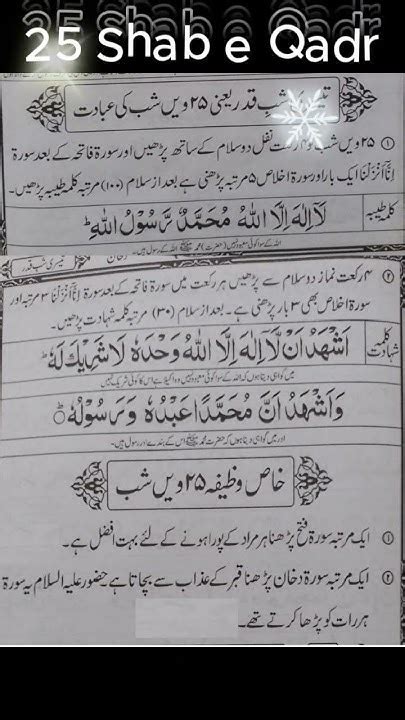 25 Shab e Qadr
شبِ قدر یعنی ۲۵ ویں شب کی عبادت
① ۲۵ ویں شب کو ۴ رکعت نفل دو سلام کے ساتھ پڑھیں اور سورۃ فاتحہ کے بعد سورۃ
اِنَّآ اَنْزَلْنَا ایک بار اور سورۃ اخلاص ۵ مرتبہ پڑھنی ہے بعد از سلام (۱۰۰) مرتبہ کلمہ طیبہ پڑھیں۔
کلمہ طیبہ
لَآ اِلٰهَ اِلَّا اللّٰهُ مُحَمَّدٌ رَّسُوْلُ اللّٰهِ ؕ
اللہ کے سوا کوئی معبود نہیں (حضرت) محمد ﷺ اللہ کے رسول ہیں۔
تیسری شب قدر
② ۴ رکعت نماز دو سلام سے پڑھیں ہر رکعت میں سورۃ فاتحہ کے بعد سورۃ اِنَّآ اَنْزَلْنَا ۳ مرتبہ اور
سورۃ اخلاص بھی ۳ بار پڑھنی ہے۔ بعد از سلام (۳۰) مرتبہ کلمہ شہادت پڑھیں۔
کلمہ شہادت
اَشْهَدُ اَنْ لَّآ اِلٰهَ اِلَّا اللّٰهُ وَحْدَهٗ لَا شَرِیْكَ لَهٗ
میں گواہی دیتا ہوں کہ اللہ کے سوا کوئی معبود نہیں وہ اکیلا ہے اس کا کوئی شریک نہیں
وَاَشْهَدُ اَنَّ مُحَمَّدًا عَبْدُهٗ وَ رَسُوْلُهٗ
اور میں گواہی دیتا ہوں کہ حضرت محمد ﷺ اس کے بندے اور رسول ہیں۔
خاص وظیفہ ۲۵ ویں شب
① ایک مرتبہ سورۃ فتح پڑھنا ہر مراد کے پورا ہونے کے لئے بہت افضل ہے۔
② ایک مرتبہ سورۃ دخان پڑھنا قبر کے عذاب سے بچاتا ہے۔ حضور علیہ السلام یہ سورۃ
ہر رات کو پڑھا کرتے تھے۔